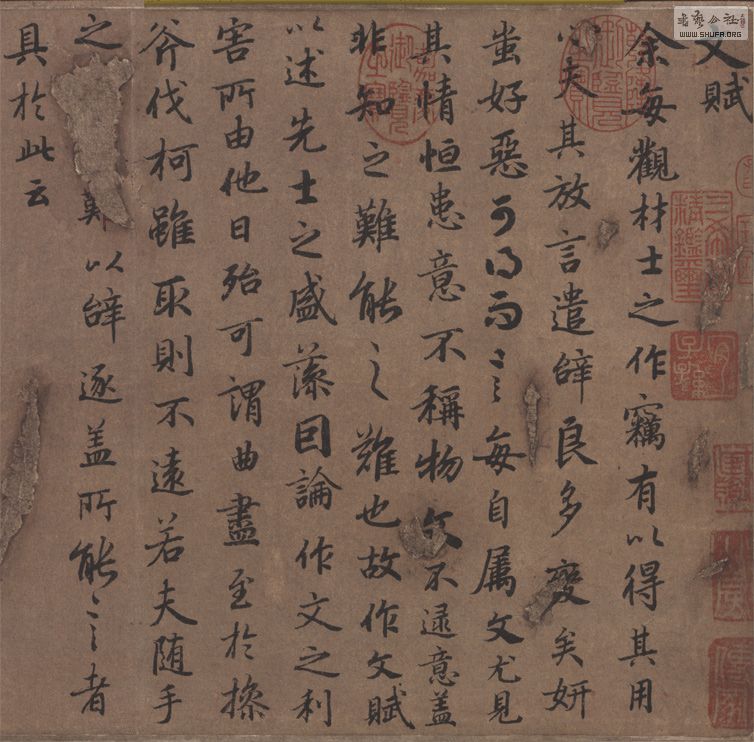 文賦
余每觀材士之作竊有以得其用
心夫其放言遣辞良多變矣妍
蚩好惡可得而言每自属文尤見
其情恒患意不稱物文不逮意盖
非知之難能之之難也故作文賦
以述先士之盛藻因論作文之利
害所由他日殆可謂曲盡至於操
斧伐柯雖取則不遠若夫随手
之 以辞逐盖所能言者
具於此云
书艺公社
WWW.SHUFA.ORG